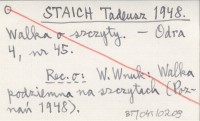 STAICH Tadeusz 1948.
Walka o szczyty. — Odra
4, nr 45.
Rec. o: W. Wnuk: Walka
podziemna na szczytach (Poz-
nań 1948).